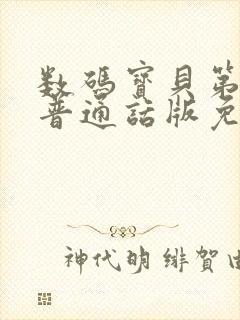 数码寶貝第
普通話版免
神代明 緋賀由